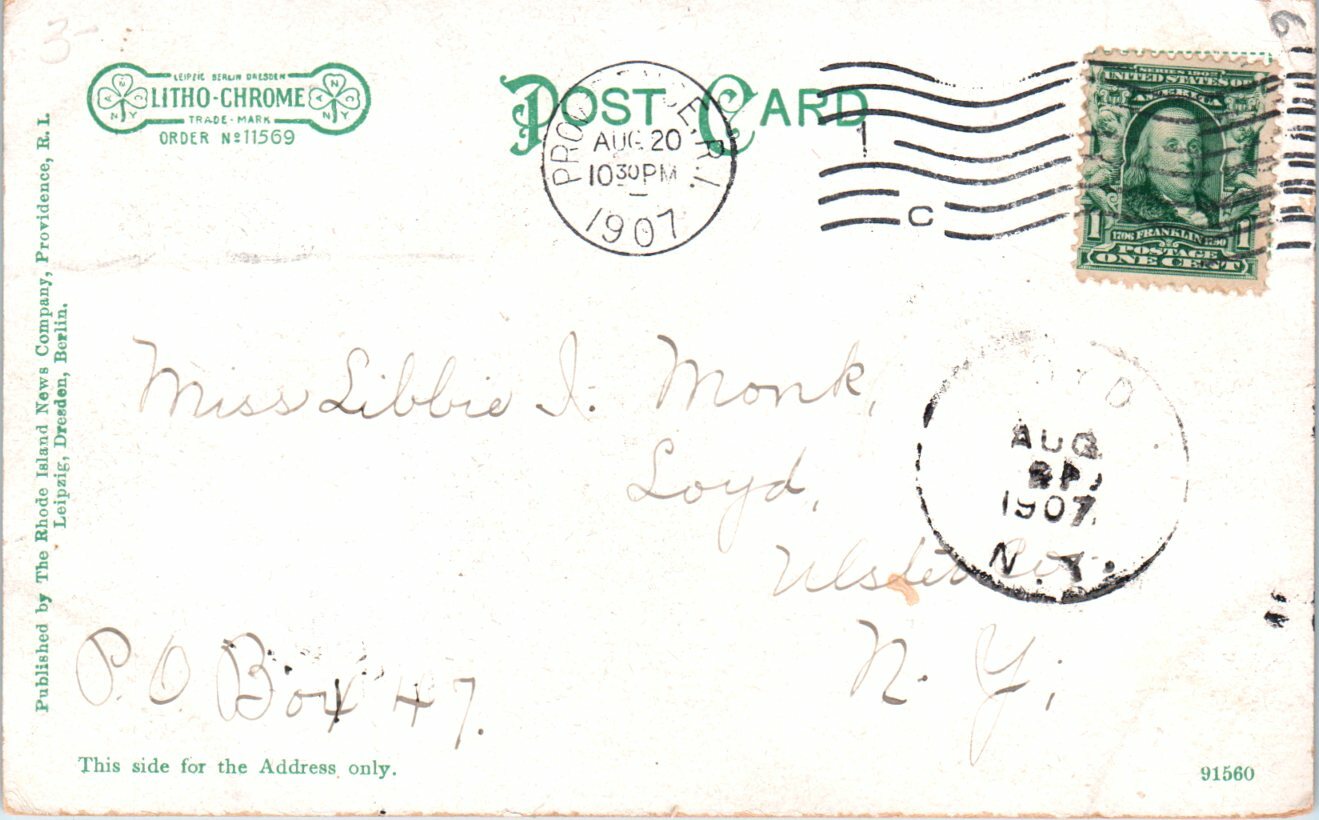 3-
LEIPZIG BERLIN DRESDEN
LITHO-CHROME
TRADE-MARK
ORDER Nº 11569
POST CARD
PROVIDENCE, R.I.
AUG 20
10 30 PM
1907
1
C
SERIES 1902
UNITED STATES OF
AMERICA
1706 FRANKLIN 1790
1 1
POSTAGE
ONE CENT
Published by The Rhode Island News Company, Providence, R. I.
Leipzig, Dresden, Berlin.
Miss Libbie I. Monk,
Loyd,
Ulster Co.
N. Y.,
P. O Box 47.
AUG
1907
N.Y.
This side for the Address only.
91560